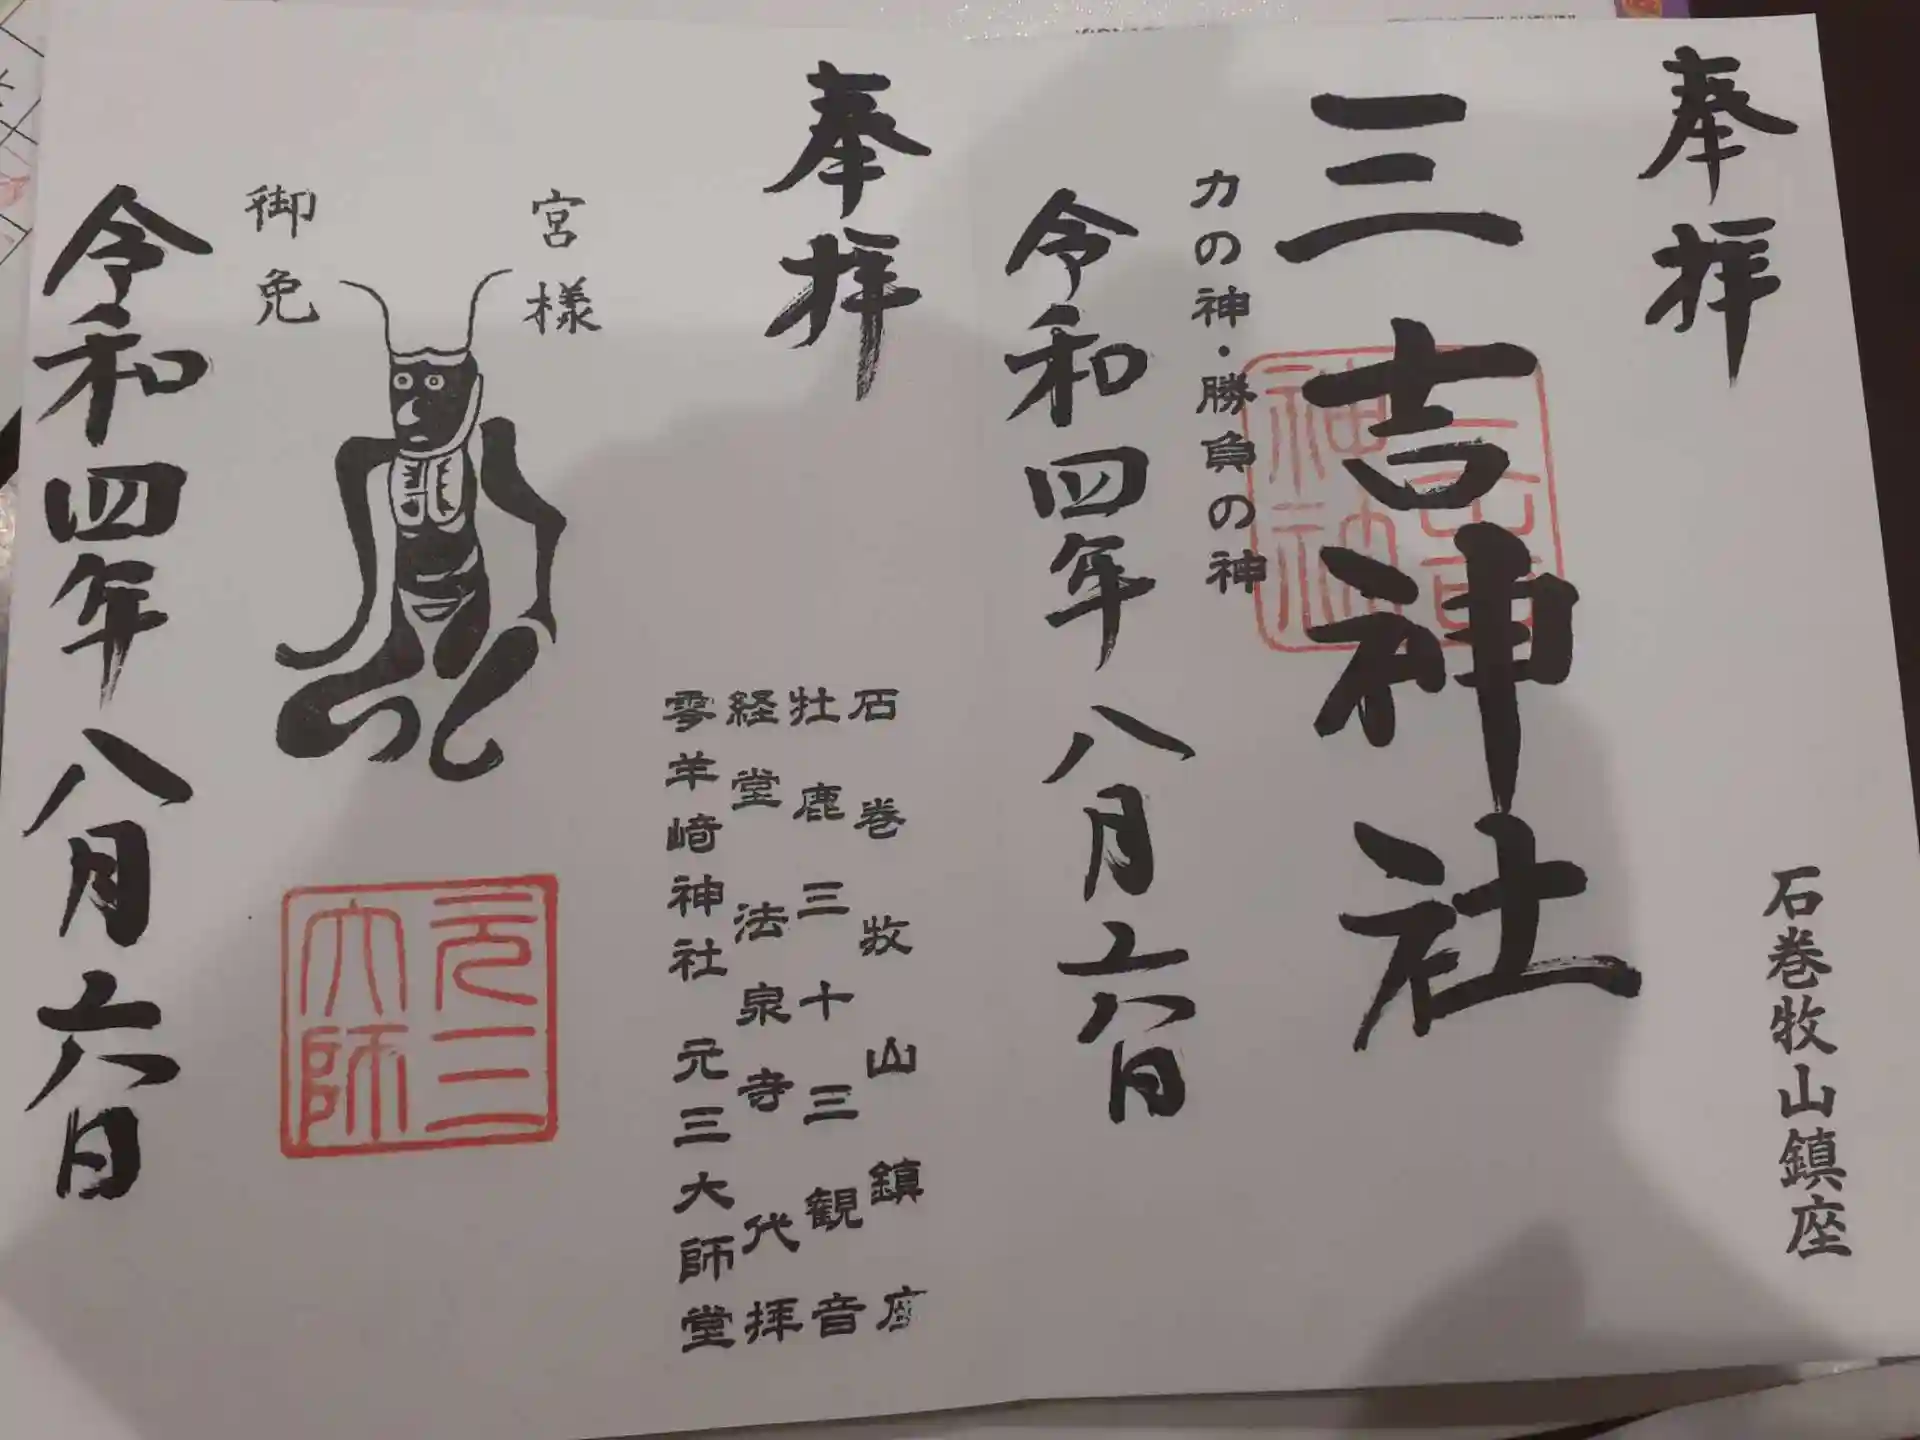 奉拝
石巻牧山鎮座
三吉神社
三吉神社
力の神・勝負の神
令和四年八月六日
奉拝
石巻牧山鎮座
牡鹿三十三観音
経堂法泉寺代拝
零羊崎神社元三大師堂
宮様
御免
元三大師
令和四年八月六日